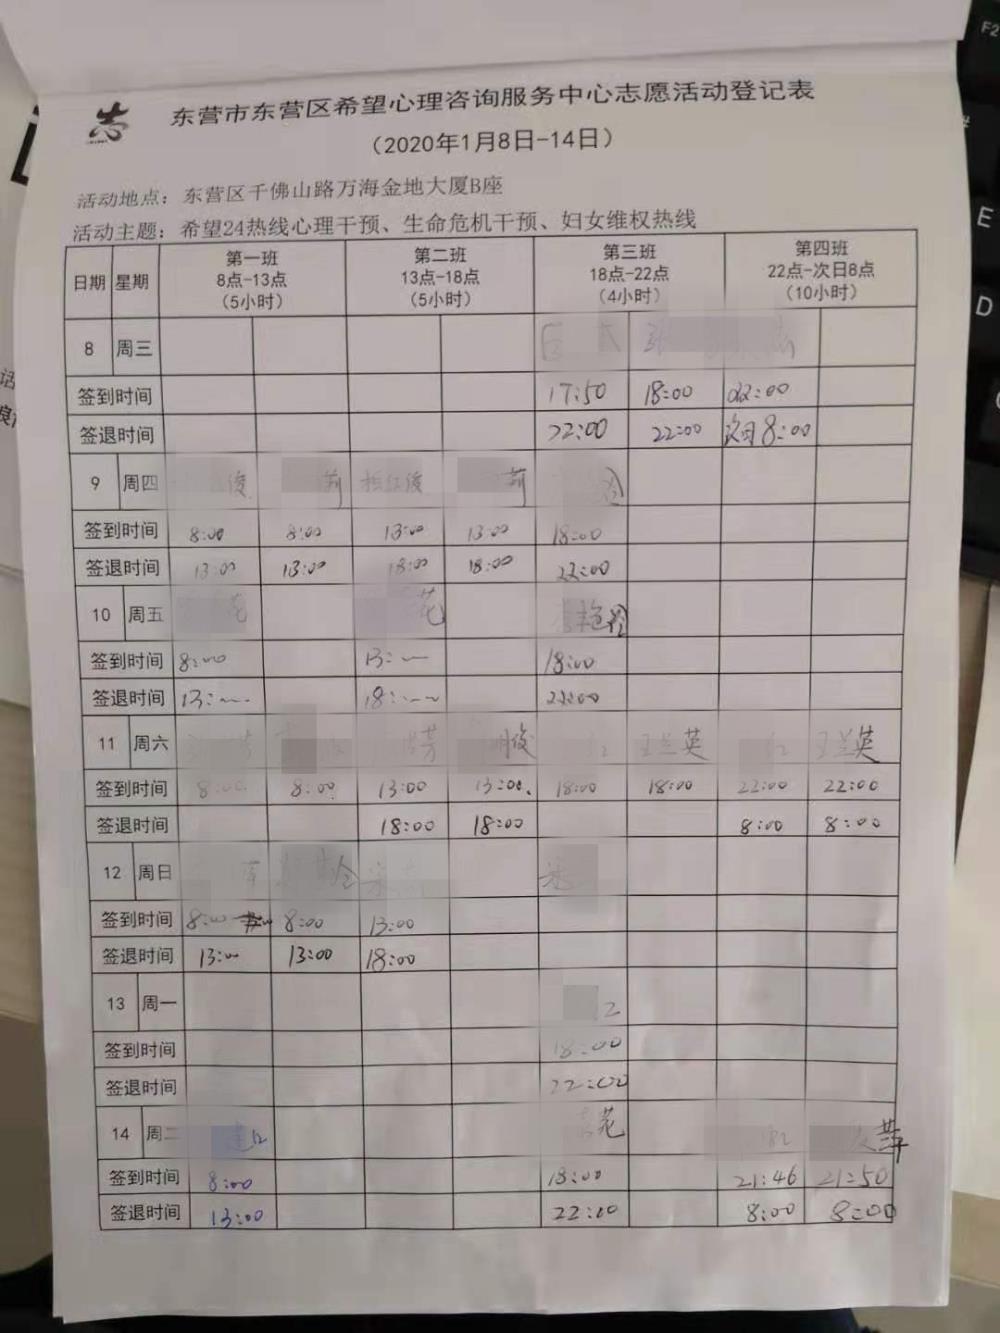 志
东营市东营区希望心理咨询服务中心志愿活动登记表
（2020年1月8日-14日）
活动地点：东营区千佛山路万海金地大厦B座
活动主题：希望24热线心理干预、生命危机干预、妇女维权热线
日期 星期 第一班 8点-13点 （5小时） 第二班 13点-18点 （5小时） 第三班 18点-22点 （4小时） 第四班 22点-次日8点 （10小时）
8 周三
签到时间 17:50 18:00 22:00
签退时间 22:00 22:00 次日8:00
9 周四 俊 莉 俊 莉 玲
签到时间 8:00 8:00 13:00 13:00 18:00
签退时间 13:00 13:00 18:00 18:00 22:00
10 周五 花 花 艳玲
签到时间 8:00 13:— 18:00
签退时间 13:— 18:— 22:00
11 周六 芳 芳 俊 红 王兰英 红 王兰英
签到时间 8:00 8:00 13:00 13:00 18:00 18:00 22:00 22:00
签退时间 18:00 18:00 8:00 8:00
12 周日
签到时间 8:00 8:00 13:00
签退时间 13:00 13:00 18:00
13 周一
签到时间 18:00
签退时间 22:00
14 周二 建红 花 红 萍
签到时间 8:00 18:00 21:46 21:50
签退时间 13:00 22:00 8:00 8:00
F2
E
D